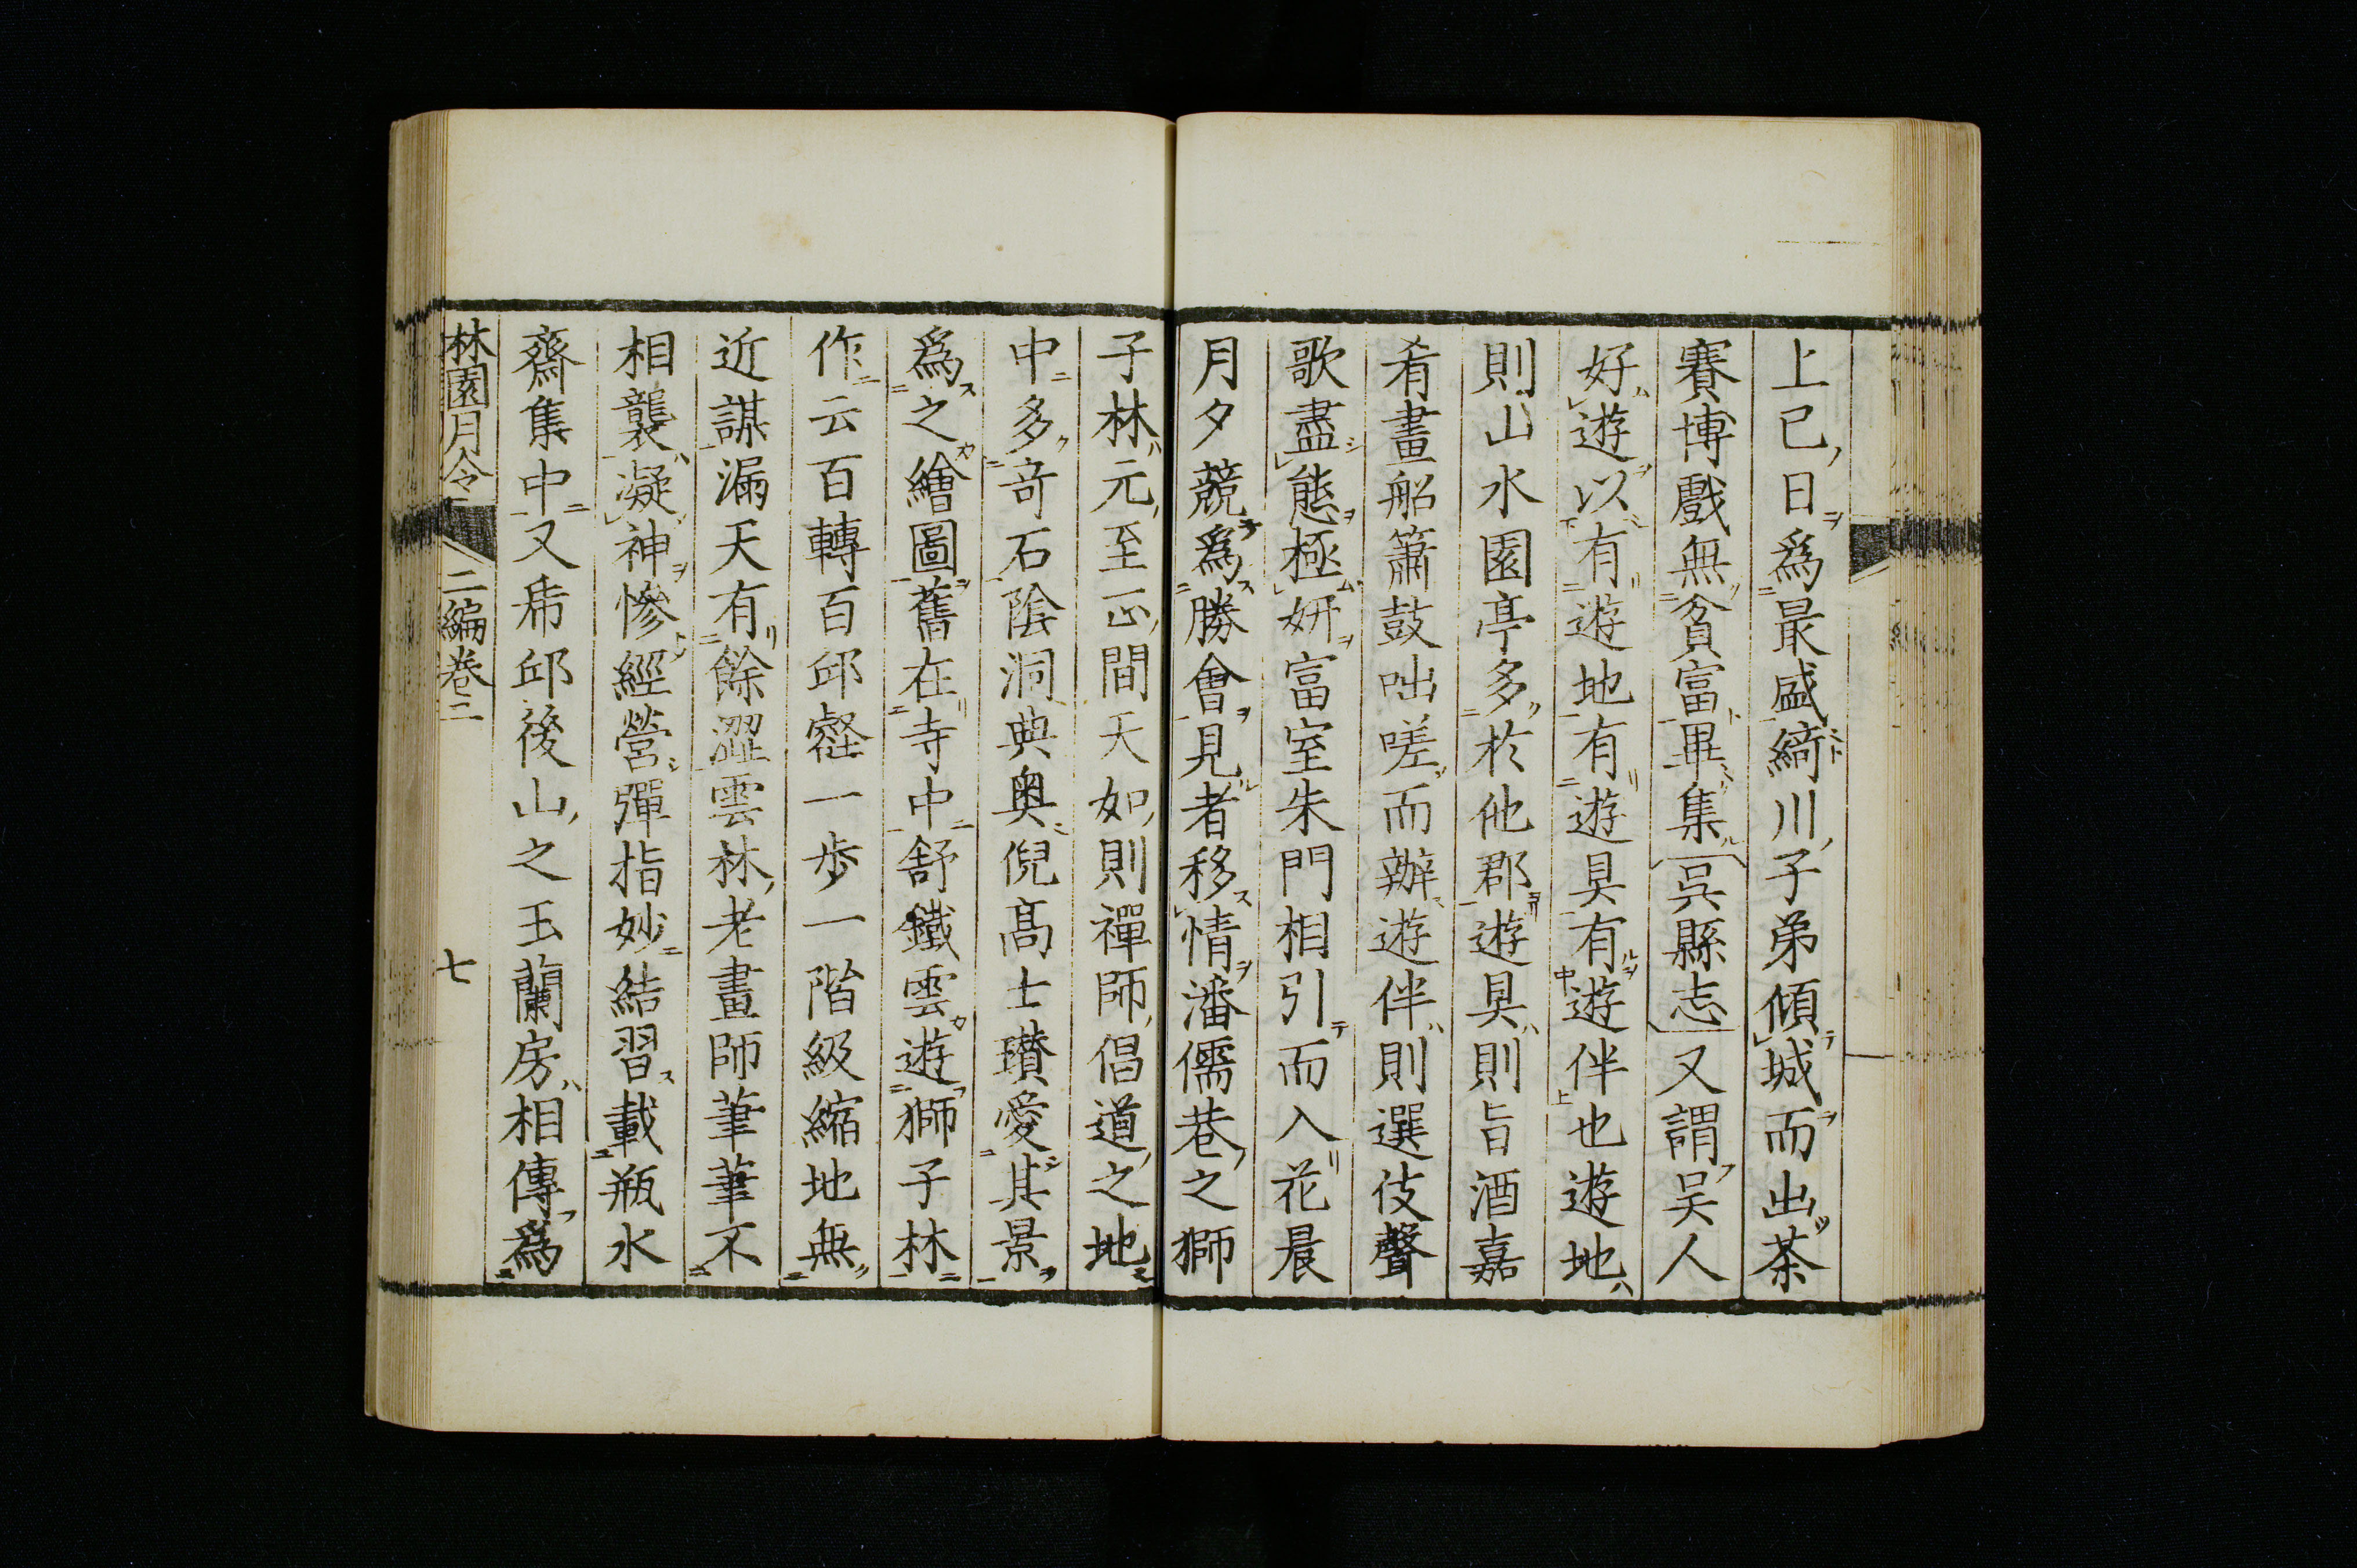 上巳日爲最盛綺川子弟傾城而出茶
賽博戲無貧富畢集吳縣志又謂吳人
好遊以有遊地有遊具有遊伴也遊地
則山水園亭多於他郡遊具則旨酒嘉
肴畫船簫鼓咄嗟而辦遊伴則選伎聲
歌盡態極妍富室朱門相引而入花晨
月夕競爲勝會見者移情潘儒巷之獅
子林元至正間天如則禪師倡道之地
中多竒石陰洞典奧倪髙士瓚愛其景
爲之繪圖舊在寺中舒鐵雲遊獅子林
作云百轉百邱壑一步一階級縮地無
近謀漏天有餘澀雲林老畫師筆筆不
相襲凝神慘經營彈指妙結習載瓶水
齋集中又帍邱後山之玉蘭房相傳爲
林園月令 二編卷三 七